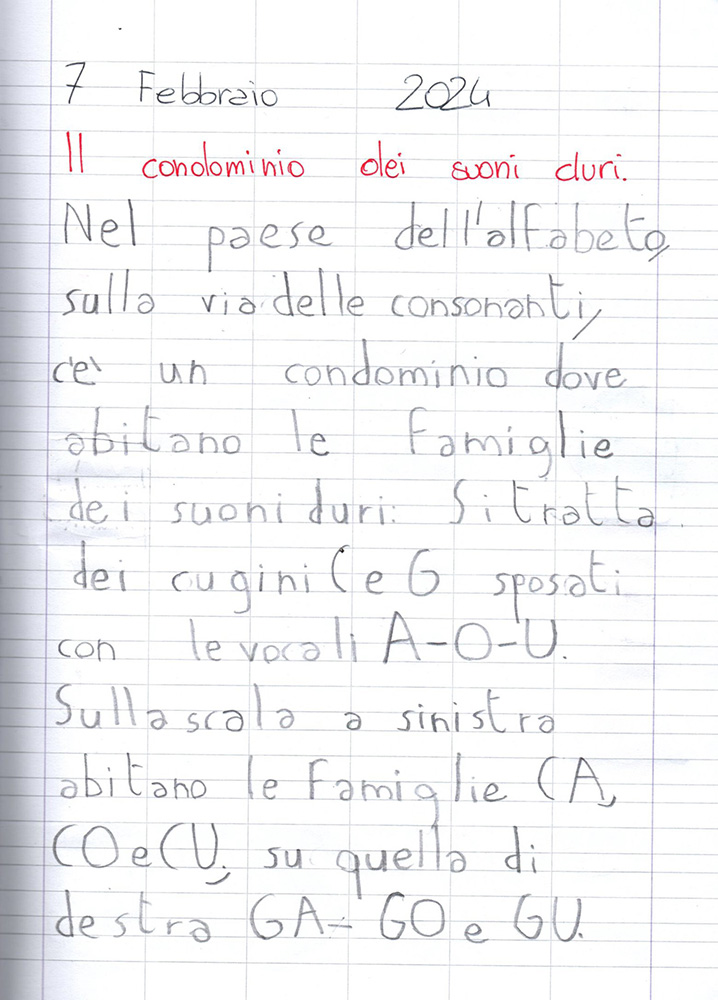 7 Febbraio 2024
Il condominio dei suoni duri.
Nel paese dell'alfabeto,
sulla via delle consonanti,
c'è un condominio dove
abitano le famiglie
dei suoni duri. Si tratta
dei cugini C e G sposati
con le vocali A-O-U.
Sulla scala a sinistra
abitano le famiglie CA,
CO e CU, su quella di
destra GA- GO e GU.